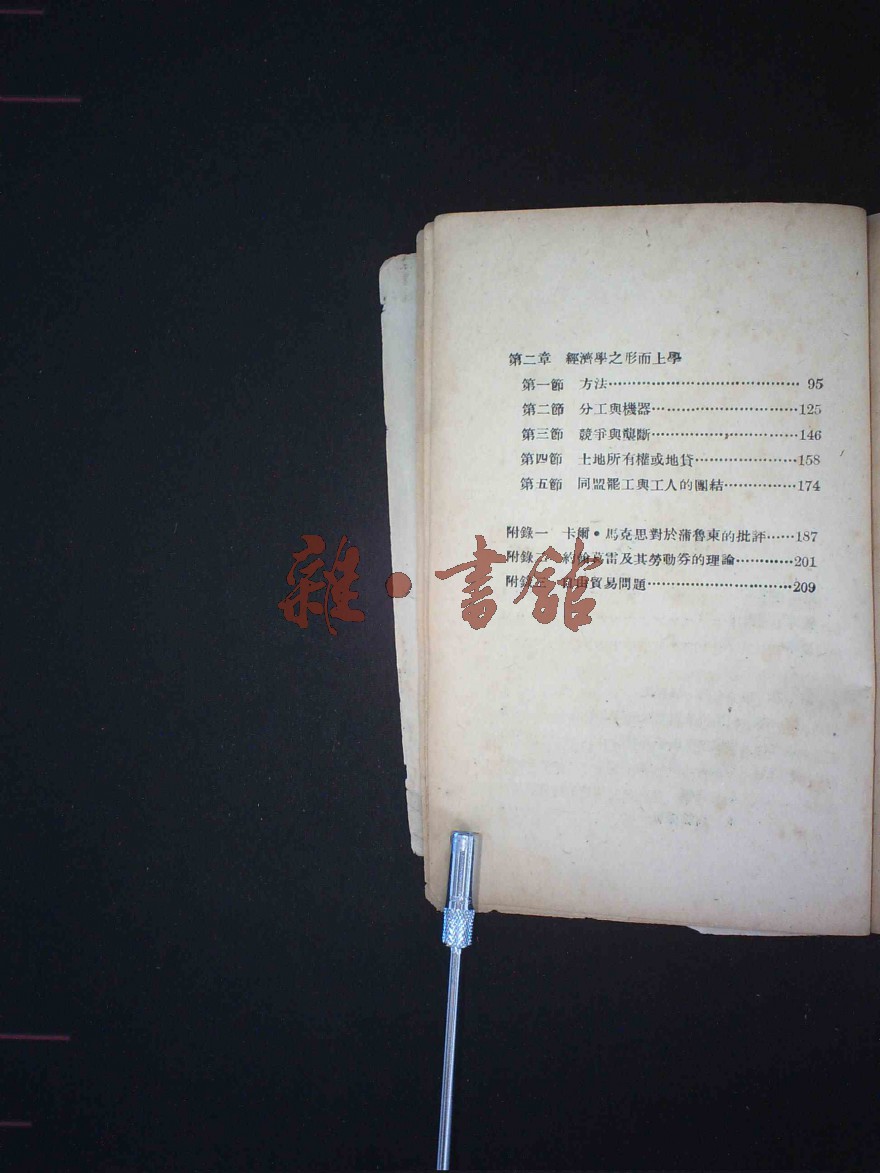 第二章　經濟學之形而上學
第一節　方法……………………………………95
第二節　分工與機器……………………………125
第三節　競爭與壟斷……………………………146
第四節　土地所有權或地貸……………………158
第五節　同盟罷工與工人的團結………………174
附錄一　卡爾・馬克思對於蒲魯東的批評……187
附錄二　約翰葛雷及其勞動券的理論…………201
附錄三　自由貿易問題…………………………209
雜・書館